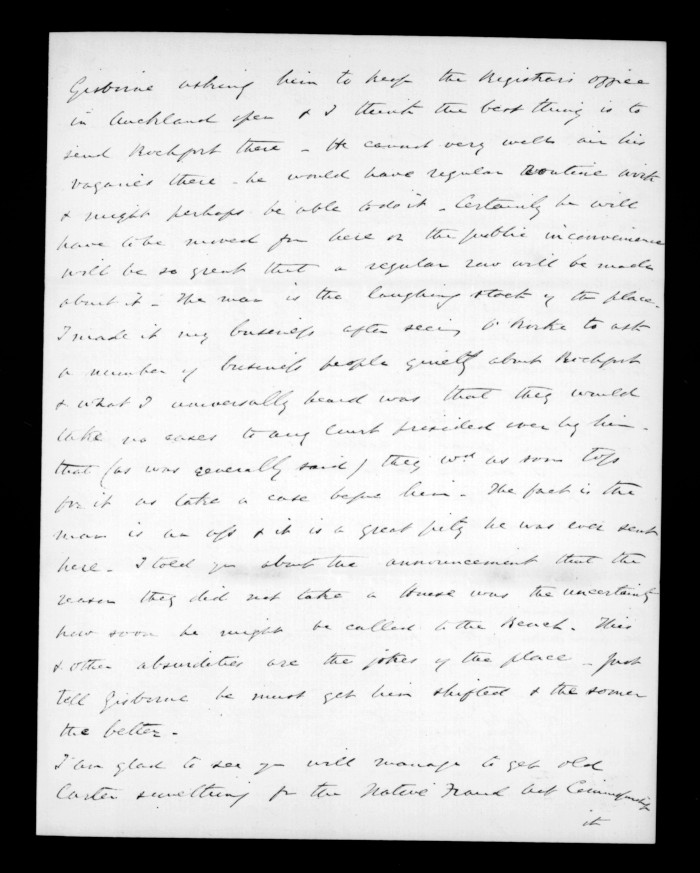 Gisborne asking him to keep the Registrars office
in Auckland open & I think the best thing is to
send Rochfort there - He cannot very well air his
vagaries there - he would have regular routine work
& might perhaps be able to do it - Certainly he will
have to be moved from here or the public inconvenience
will be so great that a regular row will be made
about it - The man is the laughing stock of the place.
I made it my business after seeing O'Rorke to ask
a number of business people quietly about Rochfort
& what I universally heard was that they would
take no cases to any Court presided over by him -
that (as was generally said) they wd as soon toss
for it as take a case before him - The fact is the
man is an ass & it is a great pity he was ever sent
here - I told you about the announcement that the
reason they did not take a House was the uncertainty
how soon he might be called to the Bench - This
& other absurdities are the jokes of the place - Just
tell Gisborne he must get him shifted & the sooner
the better -
I am glad to see you will manage to get old
Carter something for the Native Fraud Act Commissionership
it